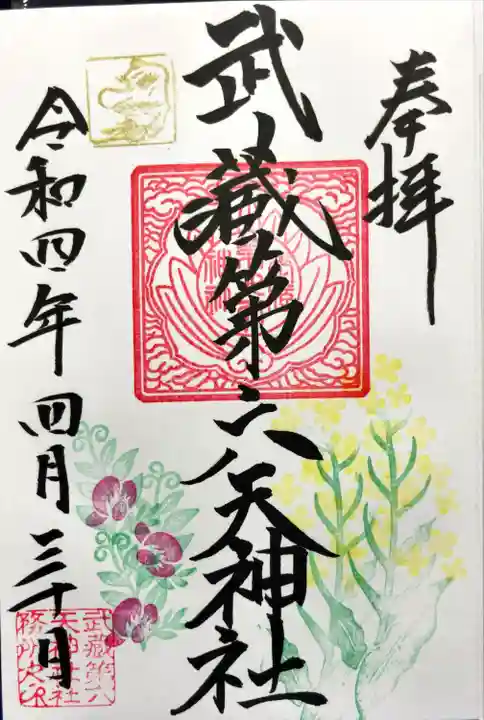 奉拝
武蔵第六天神社
令和四年四月三十日
武蔵第六
天神社社
務所之印